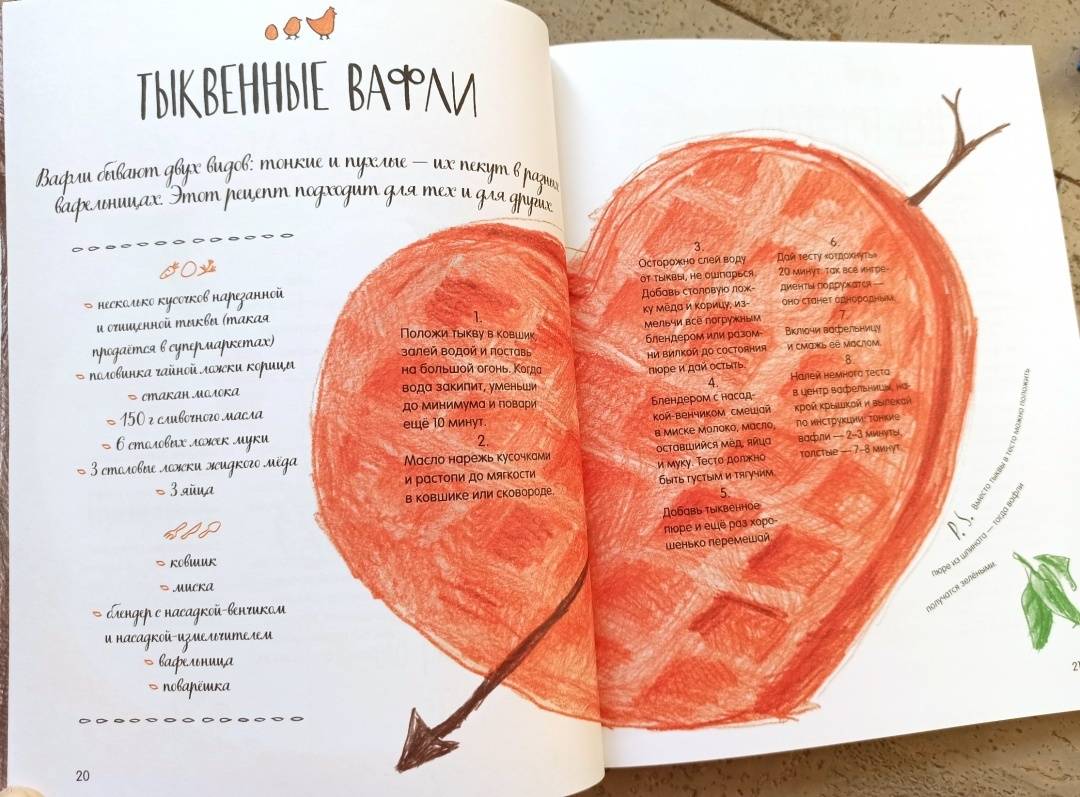 ТЫКВЕННЫЕ ВАФЛИ
Вафли бывают двух видов: тонкие и пухлые — их пекут в разных
вафельницах. Этот рецепт подходит для тех и для других.
несколько кусочков нарезанной
и очищенной тыквы (такая
продаётся в супермаркетах)
половинка чайной ложки корицы
стакан молока
150 г сливочного масла
6 столовых ложек муки
3 столовые ложки жидкого мёда
3 яйца
ковшик
миска
блендер с насадкой-венчиком
и насадкой-измельчителем
вафельница
поварёшка
20
1.
Положи тыкву в ковшик,
залей водой и поставь
на большой огонь. Когда
вода закипит, уменьши
до минимума и повари
ещё 10 минут.
2.
Масло нарежь кусочками
и растопи до мягкости
в ковшике или сковороде.
3.
Осторожно слей воду
от тыквы, не ошпарься.
Добавь столовую лож-
ку мёда и корицу, из-
мельчи всё погружным
блендером или разом-
ни вилкой до состояния
пюре и дай остыть.
4.
Блендером с насад-
кой-венчиком смешай
в миске молоко, масло,
оставшийся мёд, яйца
и муку. Тесто должно
быть густым и тягучим.
5.
Добавь тыквенное
пюре и ещё раз хоро-
шенько перемешай
6.
Дай тесту «отдохнуть»
20 минут: так все ингре-
диенты подружатся —
оно станет однородным.
7.
Включи вафельницу
и смажь её маслом.
8.
Налей немного теста
в центр вафельницы, на-
крой крышкой и выпекай
по инструкции: тонкие
вафли — 2–3 минуты,
толстые — 7–8 минут.
P. S. Вместо тыквы в тесто можно положить
пюре из шпината — тогда вафли
получатся зелёными.
21